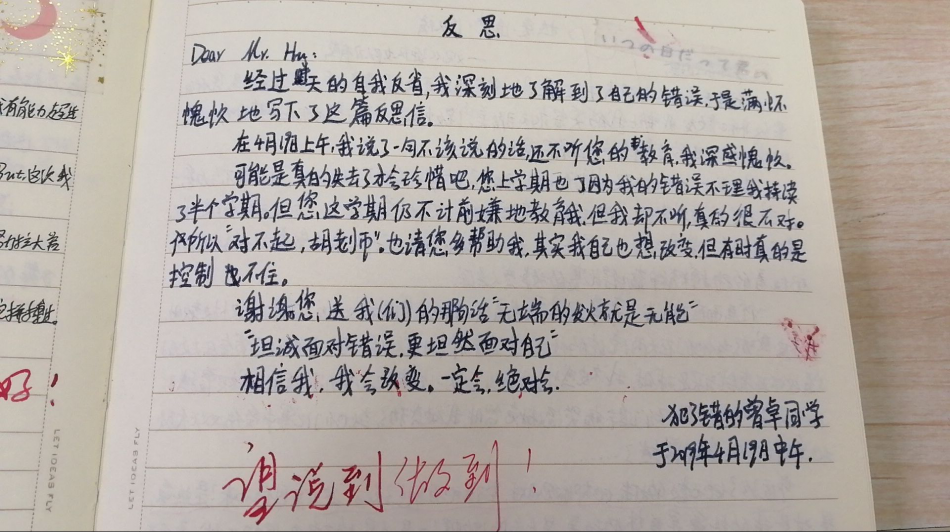 反思
Dear Mr. Hu:
经过 天的自我反省,我深刻地了解到了自己的错误,于是满怀
愧疚地写下了这篇反思信。
在4月19日上午,我说了一句不该说的话,还不听您的教育,我深感愧疚。
可能是真的失去了才会珍惜吧,您上学期也因为我的错误不理我持续
了半个学期。但您这学期仍不计前嫌地教育我,但我却不听,真的很不对。
所以"对不起,胡老师"。也请您多帮助我,其实我自己也想改变,但有时真的是
控制不住。
谢谢您,送我(们)的那句话"无端的发火就是无能"
"坦诚面对错误,更坦然面对自己"
相信我,我会改变。一定会,绝对会.
犯了错的曾卓同学
于2019年4月19日中午.
望说到做到!
我有能力
这次我
好!
LET IDEAS FLY
LET IDEAS FLY